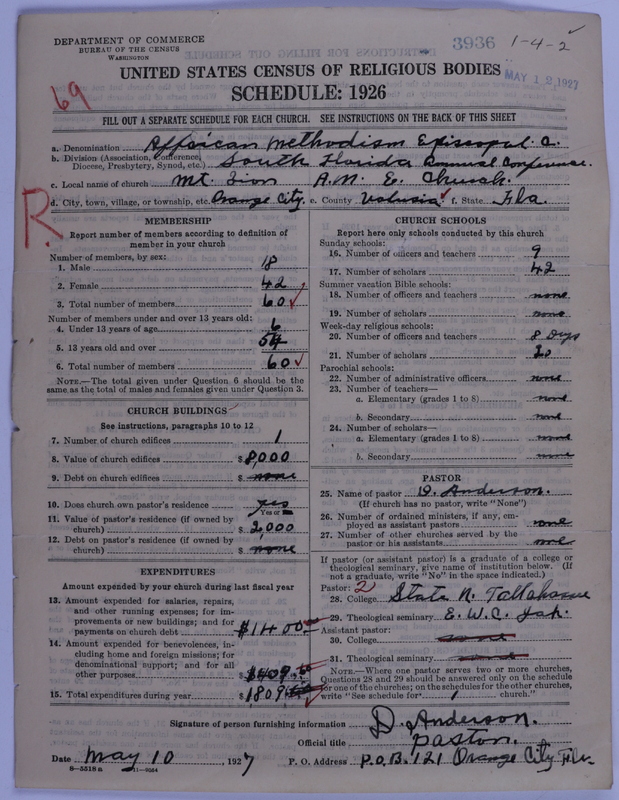 DEPARTMENT OF COMMERCE
BUREAU OF THE CENSUS
WASHINGTON
3936 1-4-2
MAY 12, 1927
UNITED STATES CENSUS OF RELIGIOUS BODIES
SCHEDULE: 1926
69
FILL OUT A SEPARATE SCHEDULE FOR EACH CHURCH. SEE INSTRUCTIONS ON THE BACK OF THIS SHEET
a. Denomination Affrican Methodism Episcopal C.
b. Division (Association, Conference, Diocese, Presbytery, Synod, etc.) South Florida Annual Conference.
c. Local name of church Mt. Zion A.M.E. Church.
d. City, town, village, or township, etc. Orange City. e. County Volusia f. State Fla.
R
MEMBERSHIP
Report number of members according to definition of member in your church
Number of members, by sex:
1. Male 18
2. Female 42
3. Total number of members 60
Number of members under and over 13 years old:
4. Under 13 years of age 6
5. 13 years old and over 54
6. Total number of members 60
NOTE.—The total given under Question 6 should be the same as the total of males and females given under Question 3.
CHURCH BUILDINGS
See instructions, paragraphs 10 to 12
7. Number of church edifices 1
8. Value of church edifices $8,000
9. Debt on church edifices $ none
10. Does church own pastor's residence yes
Yes or no
11. Value of pastor's residence (if owned by church) $2,000
12. Debt on pastor's residence (if owned by church) $ none
EXPENDITURES
Amount expended by your church during last fiscal year
13. Amount expended for salaries, repairs, and other running expenses; for improvements or new buildings; and for payments on church debt $1400
14. Amount expended for benevolences, including home and foreign missions; for denominational support; and for all other purposes $409
15. Total expenditures during year $1809
CHURCH SCHOOLS
Report here only schools conducted by this church
Sunday schools:
16. Number of officers and teachers 9
17. Number of scholars 42
Summer vacation Bible schools:
18. Number of officers and teachers none
19. Number of scholars none
Week-day religious schools:
20. Number of officers and teachers 8 Days
21. Number of scholars 20
Parochial schools:
22. Number of administrative officers none
23. Number of teachers—
a. Elementary (grades 1 to 8) none
b. Secondary none
24. Number of scholars—
a. Elementary (grades 1 to 8) none
b. Secondary none
PASTOR
25. Name of pastor D. Anderson.
(If church has no pastor, write "None")
26. Number of ordained ministers, if any, employed as assistant pastors none
27. Number of other churches served by the pastor or his assistants none
If pastor (or assistant pastor) is a graduate of a college or theological seminary, give name of institution below. (If not a graduate, write "No" in the space indicated.)
Pastor: 2
28. College State N. Tallahassee
29. Theological seminary E.W.C. Jak.
Assistant pastor:
30. College none
31. Theological seminary none
NOTE.—Where one pastor serves two or more churches, Questions 28 and 29 should be answered only on the schedule for one of the churches; on the schedules for the other churches, write "See schedule for 1 church."
Signature of person furnishing information D. Anderson.
Official title pastor.
Date May 10 1927 P. O. Address P.O.B. 121 Orange City Fla.
8—5518 a 11—8664